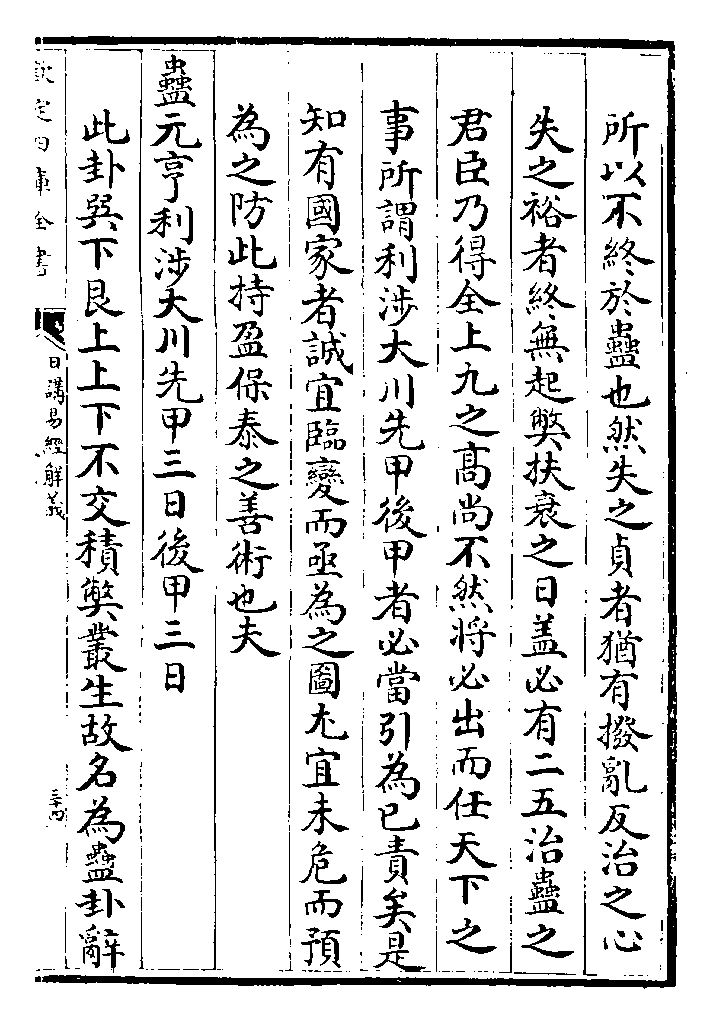 所以不終於蠱也然失之貞者猶有撥亂反治之心
失之裕者終無起弊扶衰之日盖必有二五治蠱之
君臣乃得全上九之髙尚不然將必出而任天下之
事所謂利涉大川先甲後甲者必當引為已責矣是
知有國家者誠宜臨變而亟為之圖尤宜未危而預
為之防此持盈保泰之善術也夫
蠱元亨利涉大川先甲三日後甲三日
此卦巽下艮上上下不交積弊叢生故名為蠱卦辭
欽定四庫全書
日講易經解義
三十四